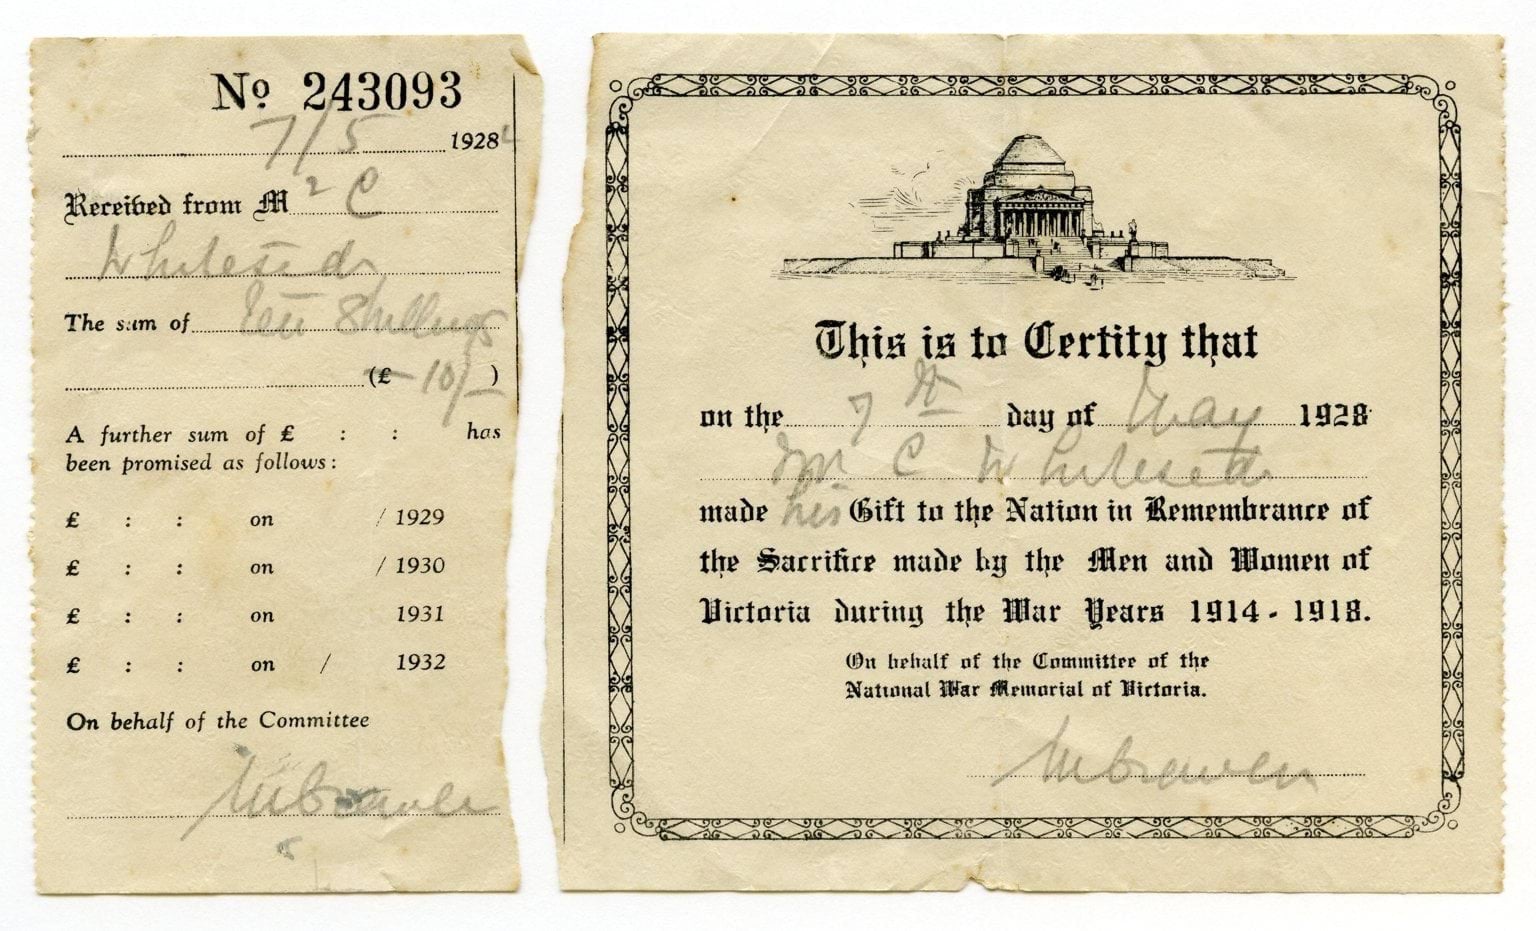 No 243093
7/5 1928
Received from Mr C
Whiteside
The sum of Ten Shillings
(£ - 10/- )
A further sum of £ : : has
been promised as follows:
£ : : on / 1929
£ : : on / 1930
£ : : on 1931
£ : : on / 1932
On behalf of the Committee
This is to Certify that
on the 7th day of May 1928
Mr C Whiteside
made his Gift to the Nation in Remembrance of
the Sacrifice made by the Men and Women of
Victoria during the War Years 1914 - 1918.
On behalf of the Committee of the
National War Memorial of Victoria.